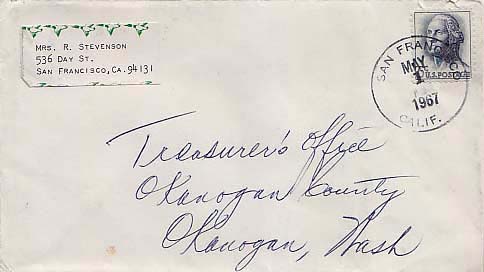 MRS. R. STEVENSON
536 DAY ST.
SAN FRANCISCO, CA. 94131
SAN FRANCISCO
MAY
1
1967
CALIF.
U.S. POSTAGE
Treasurer's Office
Okanogan County
Okanogan, Wash